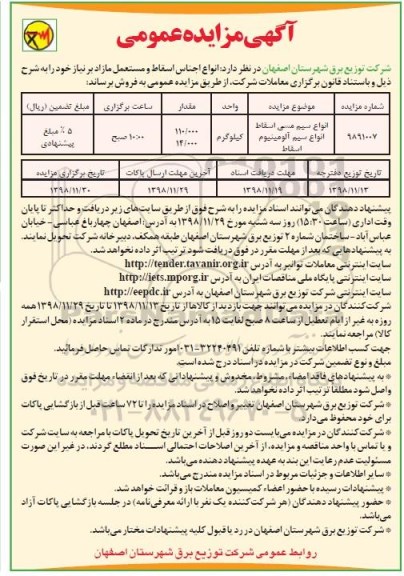 آگهی مزایده عمومی
شرکت توزیع برق شهرستان اصفهان در نظر دارد؛ انواع اجناس اسقاط و مستعمل مازاد بر نیاز خود را به شرح
ذیل و باستناد قانون برگزاری معاملات شرکت، از طریق مزایده عمومی به فروش برساند:
شماره مزایده موضوع مزایده واحد مقدار ساعت برگزاری مبلغ تضمین (ریال)
۹۸۶۱۰۰۷ انواع سیم مسی اسقاط انواع سیم آلومینیوم اسقاط کیلوگرم ۱۱۰/۰۰۰ ۱۴/۰۰۰ ۱۰:۰۰ صبح ۵ ٪ مبلغ پیشنهادی
تاریخ توزیع دفترچه مهلت دریافت اسناد آخرین مهلت ارسال پاکات تاریخ برگزاری مزایده
۱۳۹۸/۱۱/۱۳ ۱۳۹۸/۱۱/۱۹ ۱۳۹۸/۱۱/۲۹ ۱۳۹۸/۱۱/۳۰
پیشنهاد دهندگان می‌توانند اسناد مزایده را به شرح فوق از طریق سایت‌های زیر دریافت و حداکثر تا پایان
وقت اداری (ساعت ۱۵:۳۰) روز سه شنبه مورخ ۱۳۹۸/۱۱/۲۹ به آدرس: اصفهان چهارباغ عباسی- خیابان
عباس‌آباد- ساختمان شماره ۲ توزیع برق شهرستان اصفهان طبقه همکف، دبیرخانه شرکت تحویل نمایند.
به پیشنهادهایی که بعد از مهلت مقرر در فوق دریافت شود ترتیب اثر داده نخواهد شد.
سایت اینترنتی معاملات توانیر به آدرس http://tender.tavanir.org.ir
سایت اینترنتی پایگاه ملی مناقصات ایران به آدرس http://iets.mporg.ir
سایت اینترنتی شرکت توزیع برق شهرستان اصفهان به آدرس http://eepdc.ir
شرکت‌کنندگان در مزایده می توانند جهت بازدید از کالاها از تاریخ ۱۳۹۸/۱۱/۱۳ تا تاریخ ۱۳۹۸/۱۱/۲۹ همه
روزه به غیر از ایام تعطیل از ساعت ۸ صبح لغایت ۱۵ به آدرس مندرج در ماده ۲ اسناد مزایده (محل استقرار
کالا) مراجعه نمایند.
جهت کسب اطلاعات بیشتر با شماره تلفن ۳۲۲۴۰۴۹۱-۰۳۱ امور تدارکات تماس حاصل فرمائید.
مبلغ و نوع تضمین شرکت در مزایده در اسناد درج شده است.
* به پیشنهادهای فاقد امضاء، مشروط، مخدوش و پیشنهاداتی که بعد از انقضاء مهلت مقرر در تاریخ فوق
واصل شود مطلقاً ترتیب اثر داده نخواهد شد.
* شرکت توزیع برق شهرستان اصفهان تغییر و اصلاح در اسناد مزایده را تا ۷۲ ساعت قبل از بازگشایی پاکات
برای خود محفوظ می‌دارد.
* شرکت کنندگان در مزایده می‌بایست دو روز قبل از آخرین تاریخ تحویل پاکات با مراجعه به سایت شرکت
و یا تماس با واحد مناقصه و مزایده، از آخرین اصلاحات احتمالی اسناد مطلع گردند، در غیر این صورت
مسئولیت عدم رعایت این بند به عهده پیشنهاد دهنده می‌باشد.
* سایر اطلاعات و جزئیات مربوط در اسناد مزایده مندرج می‌باشد.
* پیشنهادات رسیده با حضور اعضاء کمیسیون معاملات باز و قرائت خواهد شد.
* حضور پیشنهاد دهندگان (هر شرکت‌کننده یک نفر با ارائه معرفی‌نامه) در جلسه بازگشایی پاکات آزاد
می‌باشد.
* شرکت توزیع برق شهرستان اصفهان در رد یا قبول کلیه پیشنهادات مختار می‌باشد.
روابط عمومی شرکت توزیع برق شهرستان اصفهان